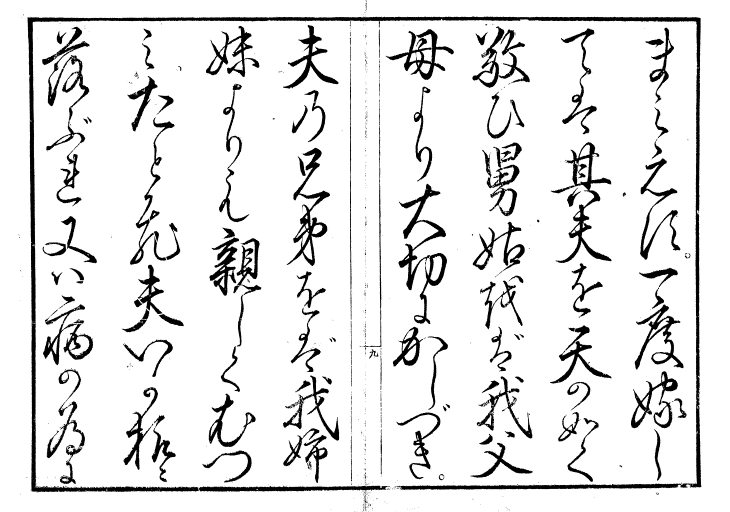 まみえず。一度嫁し
ては其夫を天の如く
敬ひ舅姑をば我父
母より大切にかしづき。
夫乃兄弟をば我姉
妹よりも親しくむつ
みたとえ夫いか
落ぶれ又は病の為に
九